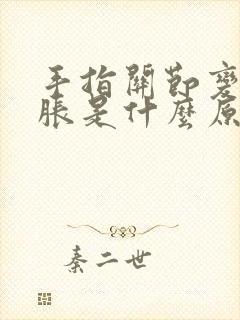 手指關節變
脹是什麼原
秦二世